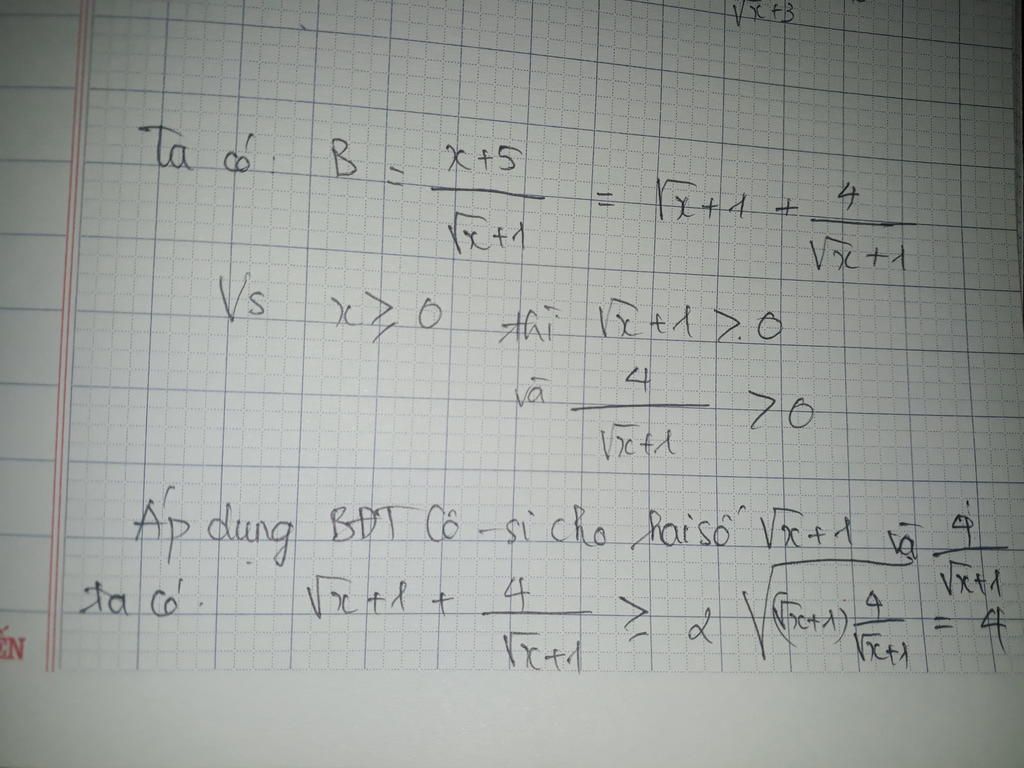 √x+3
Ta có: B = (x+5)/(√x+1) = √x+1 + 4/(√x+1)
Vs x ≥ 0 thì √x+1 > 0
và 4/(√x+1) > 0
Áp dụng BĐT Cô-si cho hai số √x+1 và 4/(√x+1)
ta có. √x+1 + 4/(√x+1) ≥ 2√((√x+1) 4/(√x+1)) = 4
ẾN